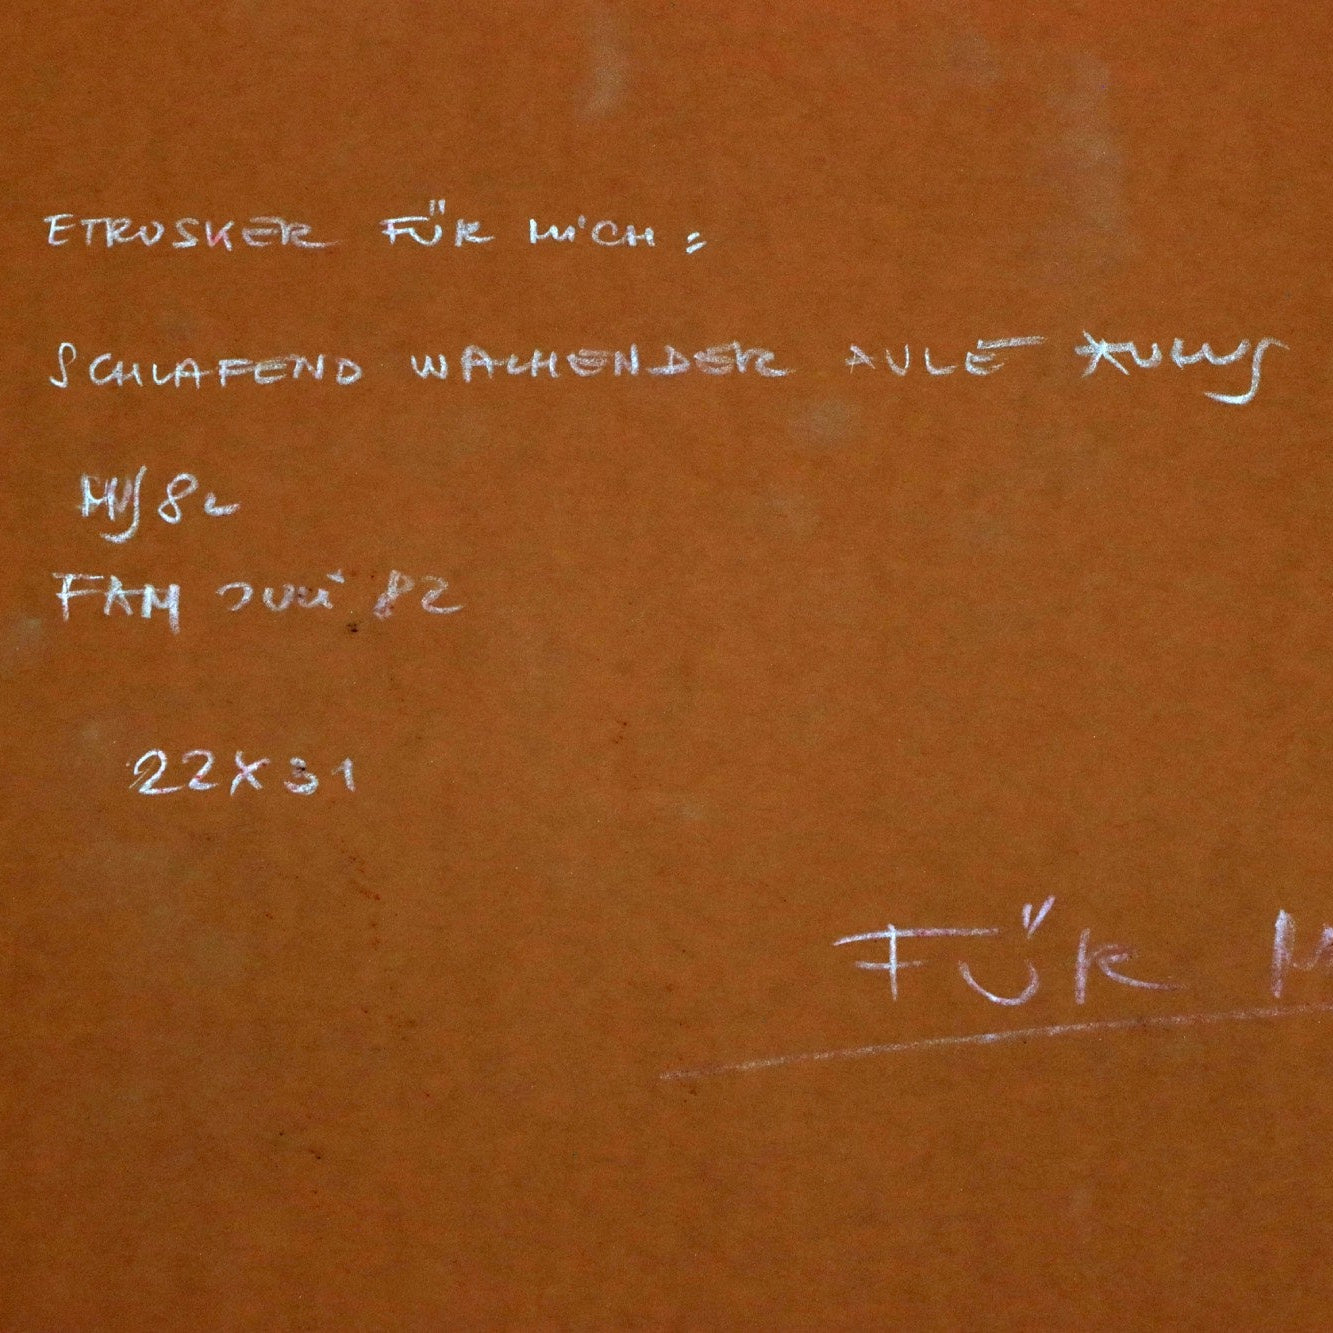 ETRUSKER FÜR MICH =
SCHLAFEND WACHENDER AULE AULUS
82
FAM JUNI 82
22X31
FÜR M